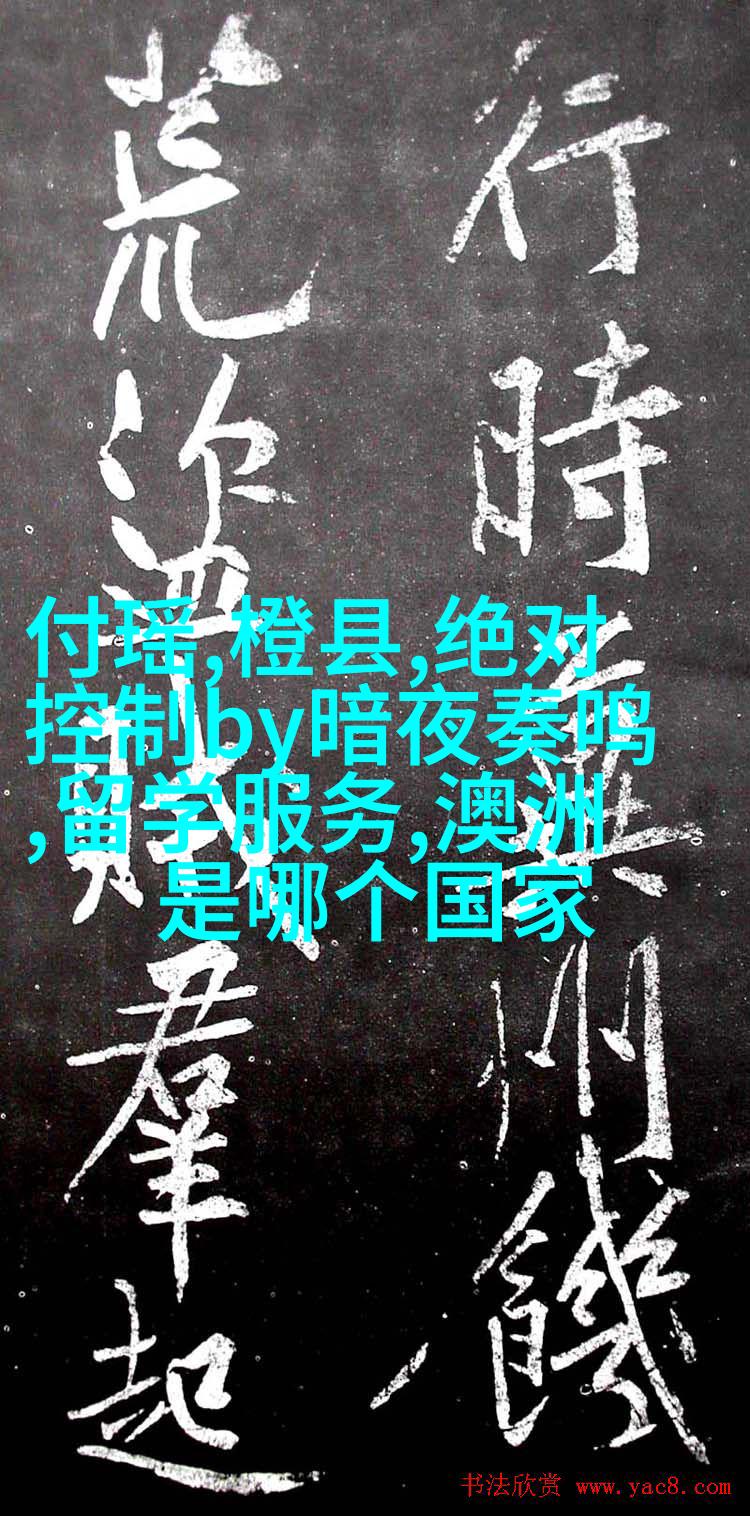 行時冀州饑
荒盜賊羣起
付瑶,橙县,绝对
控制by暗夜奏鸣
,留学服务,澳洲
是哪个国家
书法欣赏 www.yac8.com